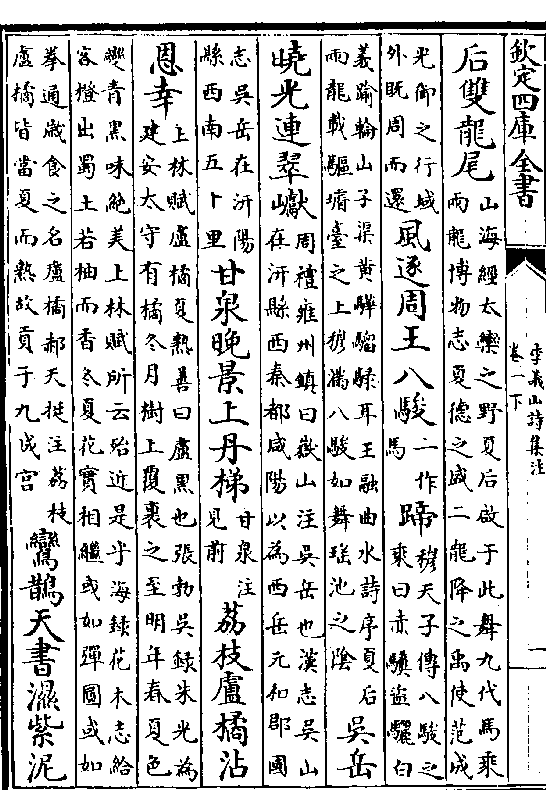 欽定四庫全書
李義山詩集注
卷一下
一
后雙龍尾
山海經太欒之野夏后啟于此舞九代馬乘
兩龍博物志夏德之盛二龍降之禹使范成
光御之行域
外既周而還
風逐周王八駿
一作
馬
蹄
穆天子傳八駿之
乘曰赤驥盜驪白
義踰輪山子渠黃驊騮騄耳王融曲水詩序夏后
兩龍載驅璿臺之上穆滿八駿如舞瑤池之陰
吳岳
曉光連翠巘
周禮雍州鎮曰嶽山注吳岳也漢志吳山
在汧縣西秦都咸陽以為西岳元和郡國
志吳岳在汧陽
縣西南五十里
甘泉晚景上丹梯
甘泉注
見前
荔枝盧橘沾
恩幸
上林賦盧橘夏熟善曰盧黑也張勃吳錄朱光為
建安太守有橘冬月樹上覆裹之至明年春夏色
變青黑味絶美上林賦所云殆近是乎海録花木志給
客橙出蜀土若柚而香冬夏花實相繼或如彈圓或如
拳通歲食之名盧橘郝天挺注荔枝
盧橘皆當夏而熟故貢于九成宫
鸞鵲天書濕紫泥